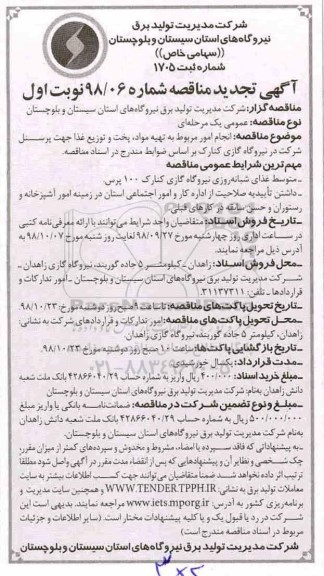 شرکت مدیریت تولید برق
نیروگاه‌های استان سیستان و بلوچستان
((سهامی خاص))
شماره ثبت ۱۷۰۵
آگهی تجدید مناقصه شماره ۹۸/۰۶ نوبت اول
مناقصه گزار: شرکت مدیریت تولید برق نیروگاه‌های استان سیستان و بلوچستان
نوع مناقصه: عمومی یک مرحله‌ای
موضوع مناقصه: انجام امور مربوط به تهیه مواد، پخت و توزیع غذا جهت پرسنل
شرکت در نیروگاه گازی کنارک بر اساس ضوابط مندرج در اسناد مناقصه.
مهم‌ترین شرایط عمومی مناقصه
- متوسط غذای شبانه‌روزی نیروگاه گازی کنارک ۱۰۰ پرس.
- داشتن تأییدیه صلاحیت از اداره کار و امور اجتماعی استان در زمینه امور آشپزخانه و
رستوران و حسن سابقه در کارهای قبلی
- تاریخ فروش اسناد: متقاضیان واجد شرایط می‌توانند با ارائه معرفی‌نامه کتبی
در ساعات اداری روز چهارشنبه مورخ ۹۸/۰۹/۲۷ لغایت روز شنبه مورخ ۹۸/۱۰/۰۷ به
آدرس ذیل مراجعه نمایند.
- محل فروش اسناد: زاهدان - کیلومتر ۵ جاده گوربند، نیروگاه گازی زاهدان
شرکت مدیریت تولید برق نیروگاه‌های استان سیستان و بلوچستان - امور تدارکات و
قراردادها - تلفن: ۳۱۱۳۷۳۱۱
- تاریخ تحویل پاکت‌های مناقصه: تا ساعت ۹ صبح روز دوشنبه مورخ ۹۸/۱۰/۲۳
- محل تحویل پاکت‌های مناقصه: امور تدارکات و قراردادهای شرکت به نشانی:
زاهدان، کیلومتر ۵ جاده گوربند، نیروگاه گازی زاهدان
- تاریخ بازگشایی پاکت‌ها: ساعت ۱۰ صبح روز دوشنبه مورخ ۹۸/۱۰/۲۳
- مدت قرارداد: یکسال خورشیدی
- مبلغ خرید اسناد: ۴۰۰/۰۰۰ ریال واریز به شماره حساب ۴۲۸۶۶۰۴۰/۲۹ بانک ملت شعبه
دانش زاهدان به‌نام شرکت مدیریت تولید برق نیروگاه‌های استان سیستان و بلوچستان
- مبلغ و نوع تضمین شرکت در مناقصه: ضمانت‌نامه بانکی یا واریز مبلغ
۵۰۰/۰۰۰/۰۰۰ ریال به شماره حساب ۴۲۸۶۶۰۴۰/۲۹ بانک ملت شعبه دانش زاهدان
به‌نام شرکت مدیریت تولید برق نیروگاه‌های استان سیستان و بلوچستان.
- به پیشنهاداتی که فاقد سپرده یا امضاء، مشروط و مخدوش و سپرده‌های کمتر از میزان مقرر،
چک شخصی و نظایر آن و پیشنهادهایی که پس از انقضاء مدت مقرر در آگهی واصل شود مطلقا
ترتیب اثر داده نخواهد شد. ضمنا متقاضیان می‌توانند جهت کسب اطلاعات بیشتر به سایت
معاملات تولید برق به نشانی: WWW.TENDER.TPPH.IR و همچنین سایت مدیریت و
برنامه‌ریزی کشور به آدرس: www.iets.mporg.ir مراجعه نمایند. بدیهی است این
شرکت در رد یا قبول یک و یا کلیه پیشنهادات مختار است. (سایر اطلاعات و جزئیات
مربوط در اسناد مناقصه مندرج است)
شرکت مدیریت تولید برق نیروگاه‌های استان سیستان و بلوچستان